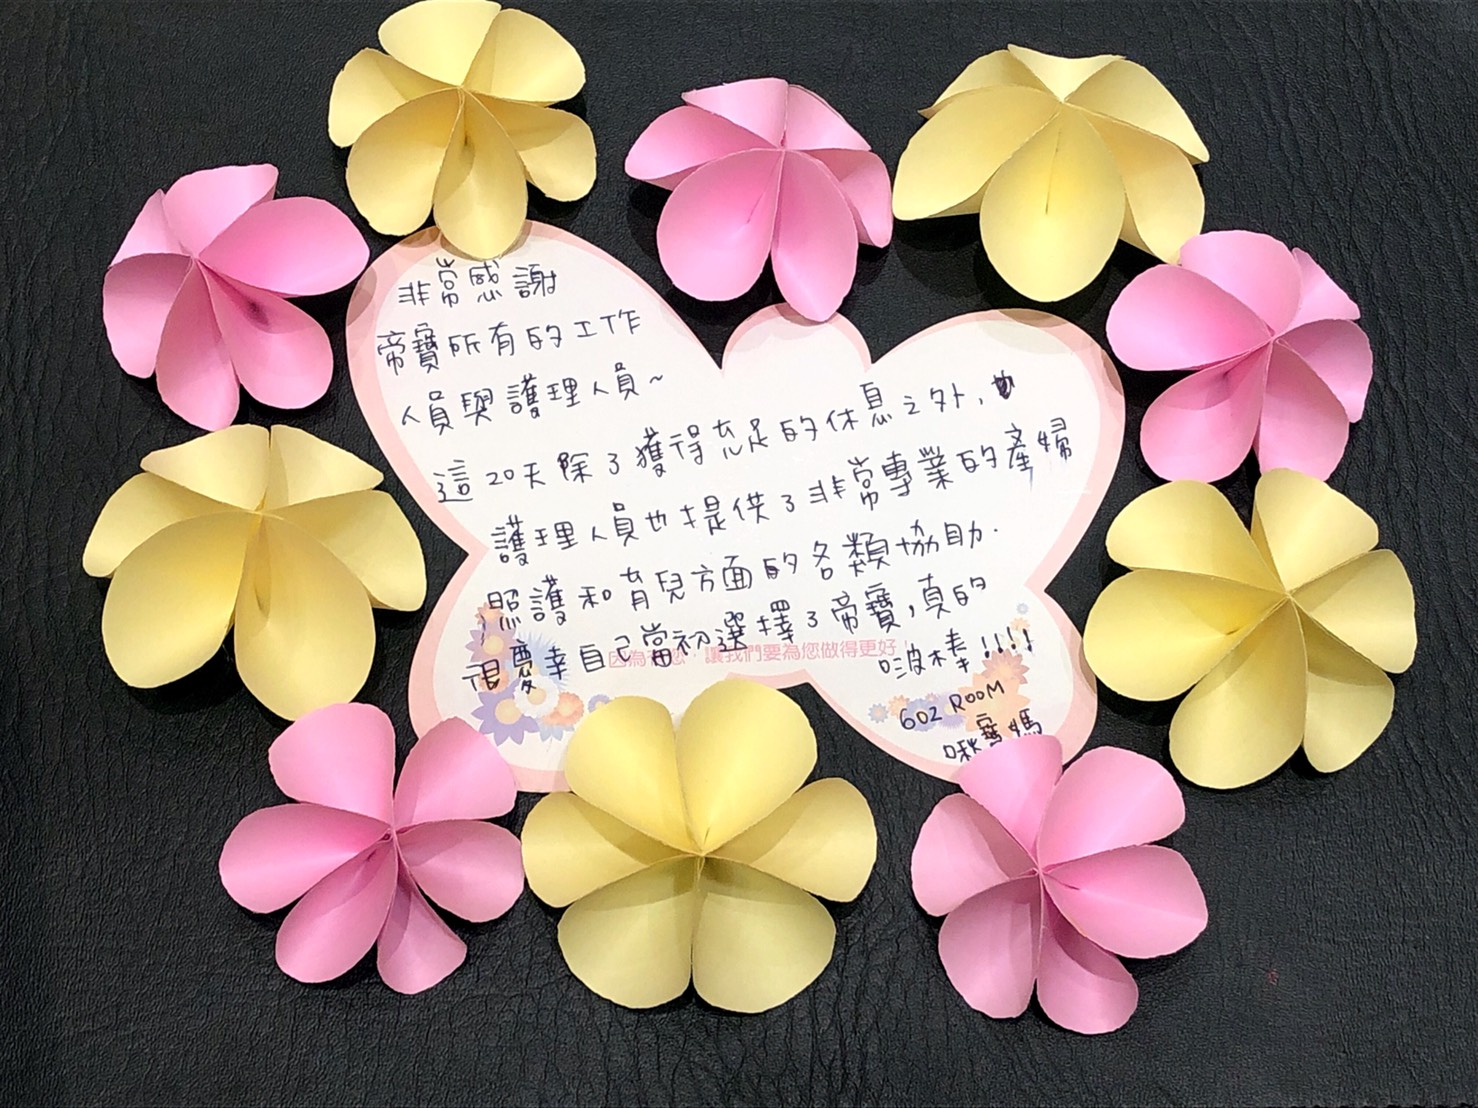 非常感謝
帝寶所有的工作
人員與護理人員~
這20天除了獲得充足的休息之外,
護理人員也提供了非常專業的產婦
照護和育兒方面的各類協助.
很慶幸自己當初選擇了帝寶,真的
因為 您‧讓我們要為您做得更好
啵棒!!!!
602 ROOM
啾寶媽